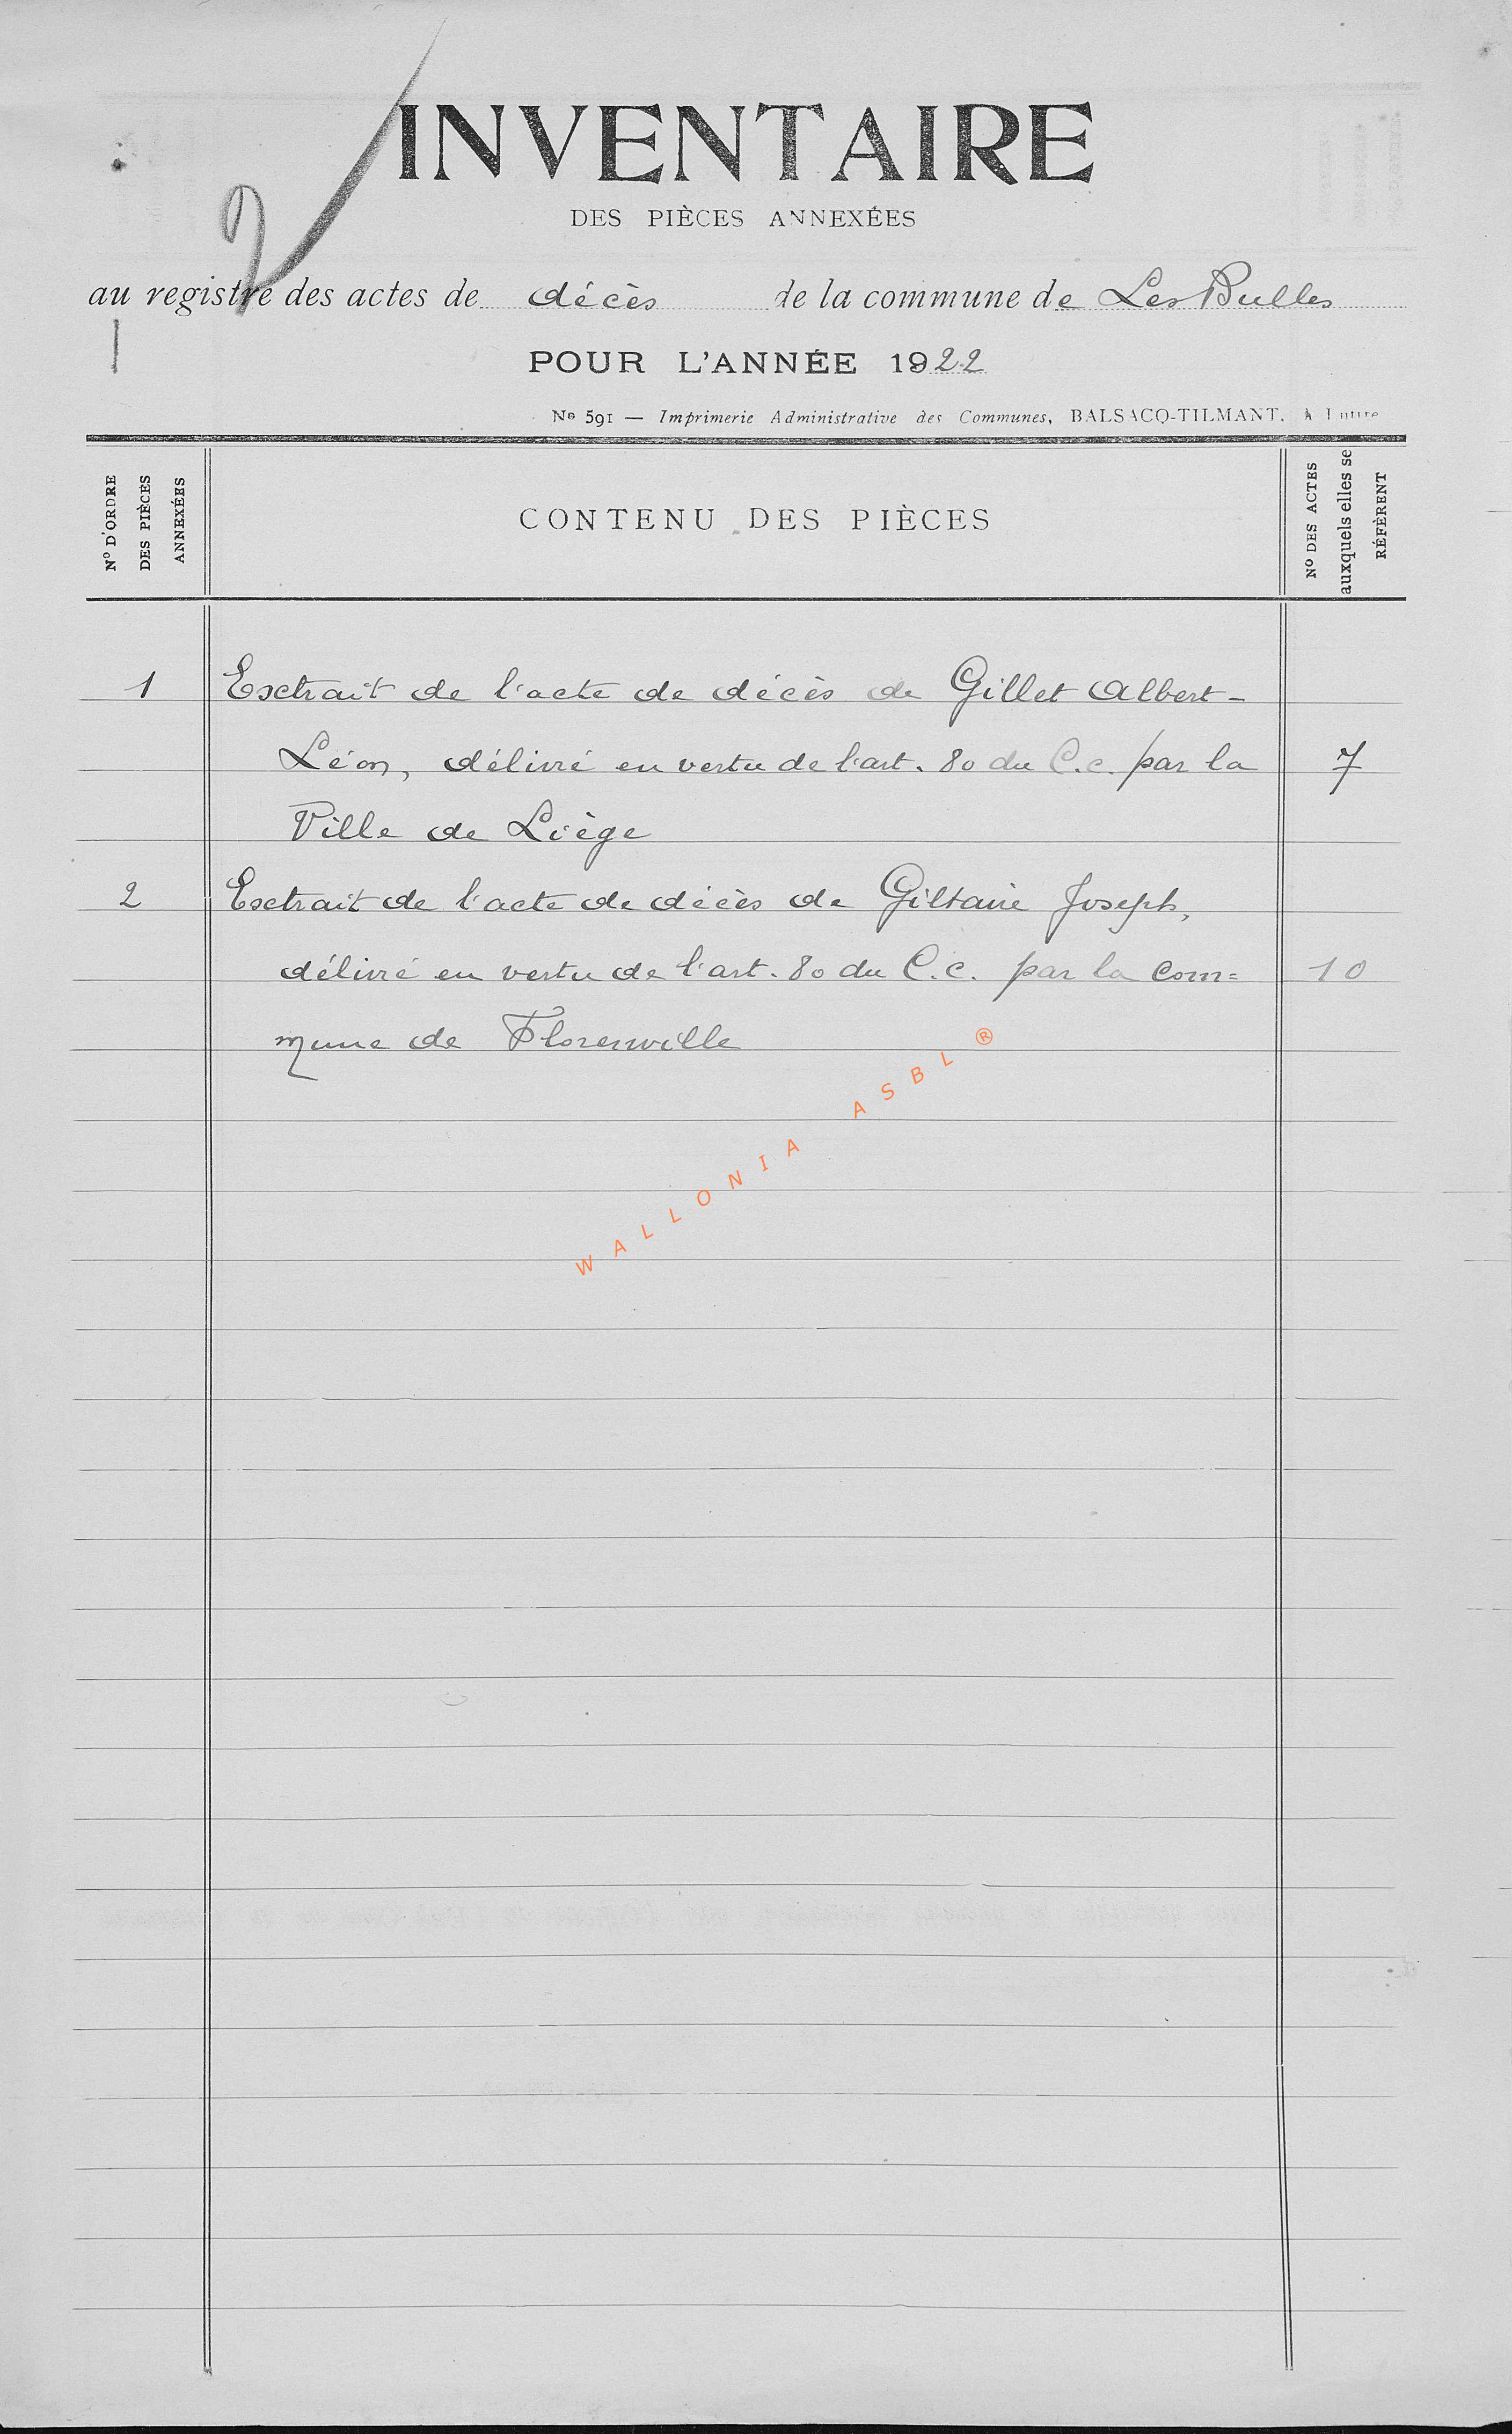 INVENTAIRE
DES PIÈCES ANNEXÉES
2
au registre des actes de décès de la commune de Les Bulles
1
POUR L'ANNÉE 1922
No 591 — Imprimerie Administrative des Communes, BALSACQ-TILMANT, à
No D'ORDRE
DES PIÈCES
ANNEXÉES
CONTENU DES PIÈCES
No DES ACTES
auxquels elles se
RÉFÈRENT
1 Extrait de l'acte de décès de Gillet Albert-
Léon, délivré en vertu de l'art. 80 du C.c. par la 7
Ville de Liège
2 Extrait de l'acte de décès de Giltaire Joseph,
délivré en vertu de l'art. 80 du C.c. par la com= 10
mune de Florenville
WALLONIA ASBL ®